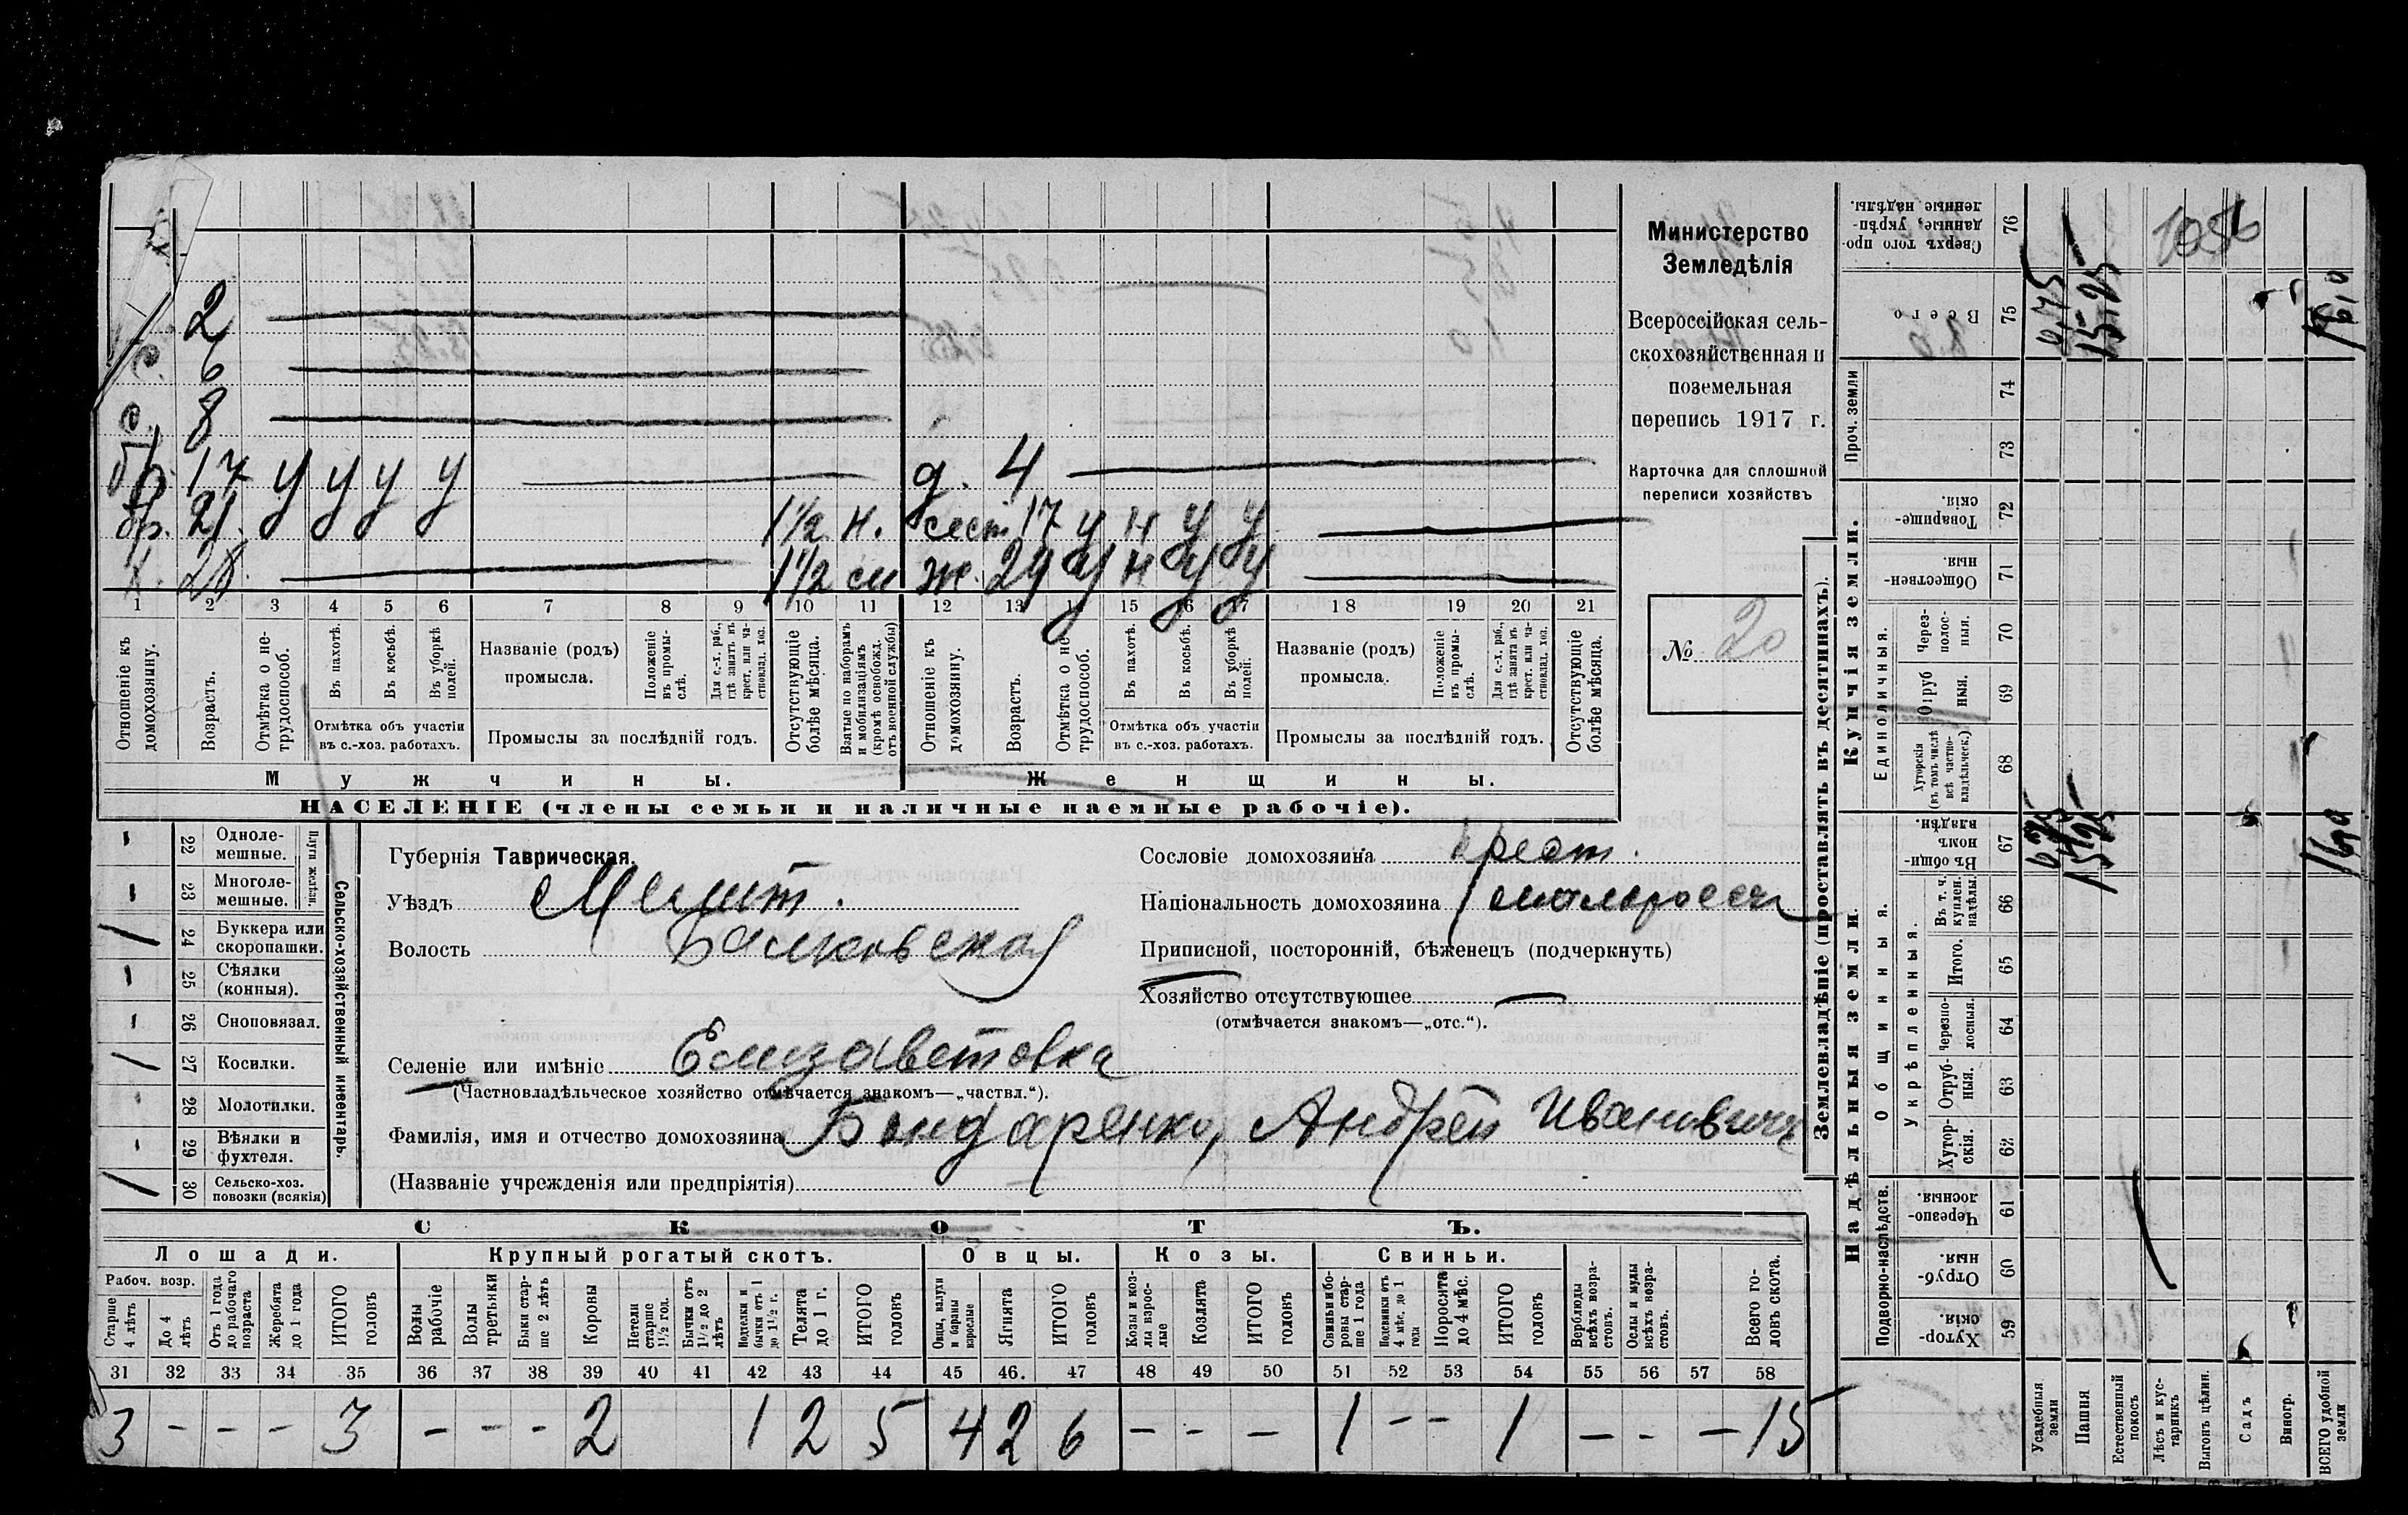 2
с. 6
с. 8
бр. 17 У У У У д. 4
бр. 21 У У У У 1½ н. сест. 17 У Н У У
х. 28. 1½ см ж. 29 У Н У У
1 2 3 4 5 6 7 8 9 10 11 12 13 14 15 16 17 18 19 20 21
Отношеніе къ домохозяину.
Возрастъ.
Отмѣтка о не-
трудоспособ.
Въ пахотѣ.
Въ косьбѣ.
Въ уборкѣ
полей.
Отмѣтка объ участіи
въ с.-хоз. работахъ.
Названіе (родъ)
промысла.
Положеніе
въ промы-
слѣ.
Для с.-х. раб.,
гдѣ занятъ въ
крест. или ча-
стновлад. хоз.
Промыслы за послѣдній годъ.
Отсутствующіе
болѣе мѣсяца.
Взятые по наборамъ
и мобилизаціямъ
(кромѣ освобожд.
отъ военной службы)
Отношеніе къ
домохозяину.
Возрастъ.
Отмѣтка о не-
трудоспособ.
Въ пахотѣ.
Въ косьбѣ.
Въ уборкѣ
полей.
Отмѣтка объ участіи
въ с.-хоз. работахъ.
Названіе (родъ)
промысла.
Положеніе
въ промы-
слѣ.
Для с.-х. раб.,
гдѣ занята въ
крест. или ча-
стновлад. хоз.
Промыслы за послѣдній годъ.
Отсутствующіе
болѣе мѣсяца.
Мужчины.
Женщины.
НАСЕЛЕНІЕ (члены семьи и наличные наемные рабочіе).
Министерство
Земледѣлія
Всероссійская сель-
скохозяйственная и
поземельная
перепись 1917 г.
Карточка для сплошной
переписи хозяйствъ
№ 20
22 Одноле-
мешные.
23 Многоле-
мешные.
Плуги желѣзн.
24 Буккера или
скоропашки.
25 Сѣялки
(конныя).
26 Сноповязал.
27 Косилки.
28 Молотилки.
29 Вѣялки и
фухтеля.
30 Сельско-хоз.
повозки (всякія)
Сельско-хозяйственный инвентарь.
Губернія Таврическая.
Уѣздъ Мелит.
Волость Балковская
Селеніе или имѣніе Елизаветовка
(Частновладѣльческое хозяйство отмѣчается знакомъ—„частвл.“).
Фамилія, имя и отчество домохозяина Бондаренко, Андрей Ивановичъ
(Названіе учрежденія или предпріятія)
Сословіе домохозяина крест.
Національность домохозяина малороссъ
Приписной, посторонній, бѣженецъ (подчеркнуть)
Хозяйство отсутствующее —
(отмѣчается знакомъ—„отс.“).
СКОТЪ.
Лошади. Крупный рогатый скотъ. Овцы. Козы. Свиньи.
Рабоч. возр.
Старше
4 лѣтъ
До 4
лѣтъ
Отъ 1 года
до рабочаго
возраста
Жеребята
до 1 года
ИТОГО
головъ
Волы
рабочіе
Волы
третьяки
Быки стар-
ше 2 лѣтъ
Коровы
Нетели
старше
1½ год.
Бычки отъ
1½ до 2
лѣтъ
Нетели и
бычки отъ 1
до 1½ г.
Телята
до 1 г.
ИТОГО
головъ
Овцы, валухи
и бараны
взрослые
Ягнята
ИТОГО
головъ
Козы и коз-
лы взрос-
лые
Козлята
ИТОГО
головъ
Свиньи и бо-
ровы стар-
ше 1 года
Подсвинки отъ
4 мѣс. до 1
года
Поросята
до 4 мѣс.
ИТОГО
головъ
Верблюды
всѣхъ возра-
стовъ.
Ослы и мулы
всѣхъ возра-
стовъ.
Всего го-
ловъ скота.
31 32 33 34 35 36 37 38 39 40 41 42 43 44 45 46. 47 48 49 50 51 52 53 54 55 56 57 58
3 - - - 3 - - - 2 1 2 5 4 2 6 - - - 1 - - 1 - - - 15
Землевладѣніе (проставлять въ десятинахъ).
Надѣльныя земли.
Купчія земли.
Проч. земли
Сверхъ того про-
данные, укрѣп-
ленные надѣлы.
76
Всего
75
74
73
Товарище-
скія.
72
Обществен-
ныя.
71
Единоличныя.
Через-
полос-
ныя.
70
Отруб
ныя.
69
Хуторскія
(въ томъ числѣ
всѣ частно-
владѣльческ.)
68
Общинныя.
Въ общин-
номъ
владѣн.
67
Укрѣпленныя.
Въ т. ч.
куплен.
надѣлы.
66
Итого.
65
Черезпо-
лосныя.
64
Отруб-
ныя.
63
Хутор-
скія.
62
Подворно-наслѣдств.
Черезпо-
лосныя
61
Отруб-
ныя.
60
Хутор-
скія.
59
Усадебныя
земли
Пашня
Естественный
покосъ
Лѣсъ и кус-
тарникъ
Выгонъ цѣлин.
Садъ
Виногр.
ВСЕГО удобной
земли
0,75
15,25
16,0